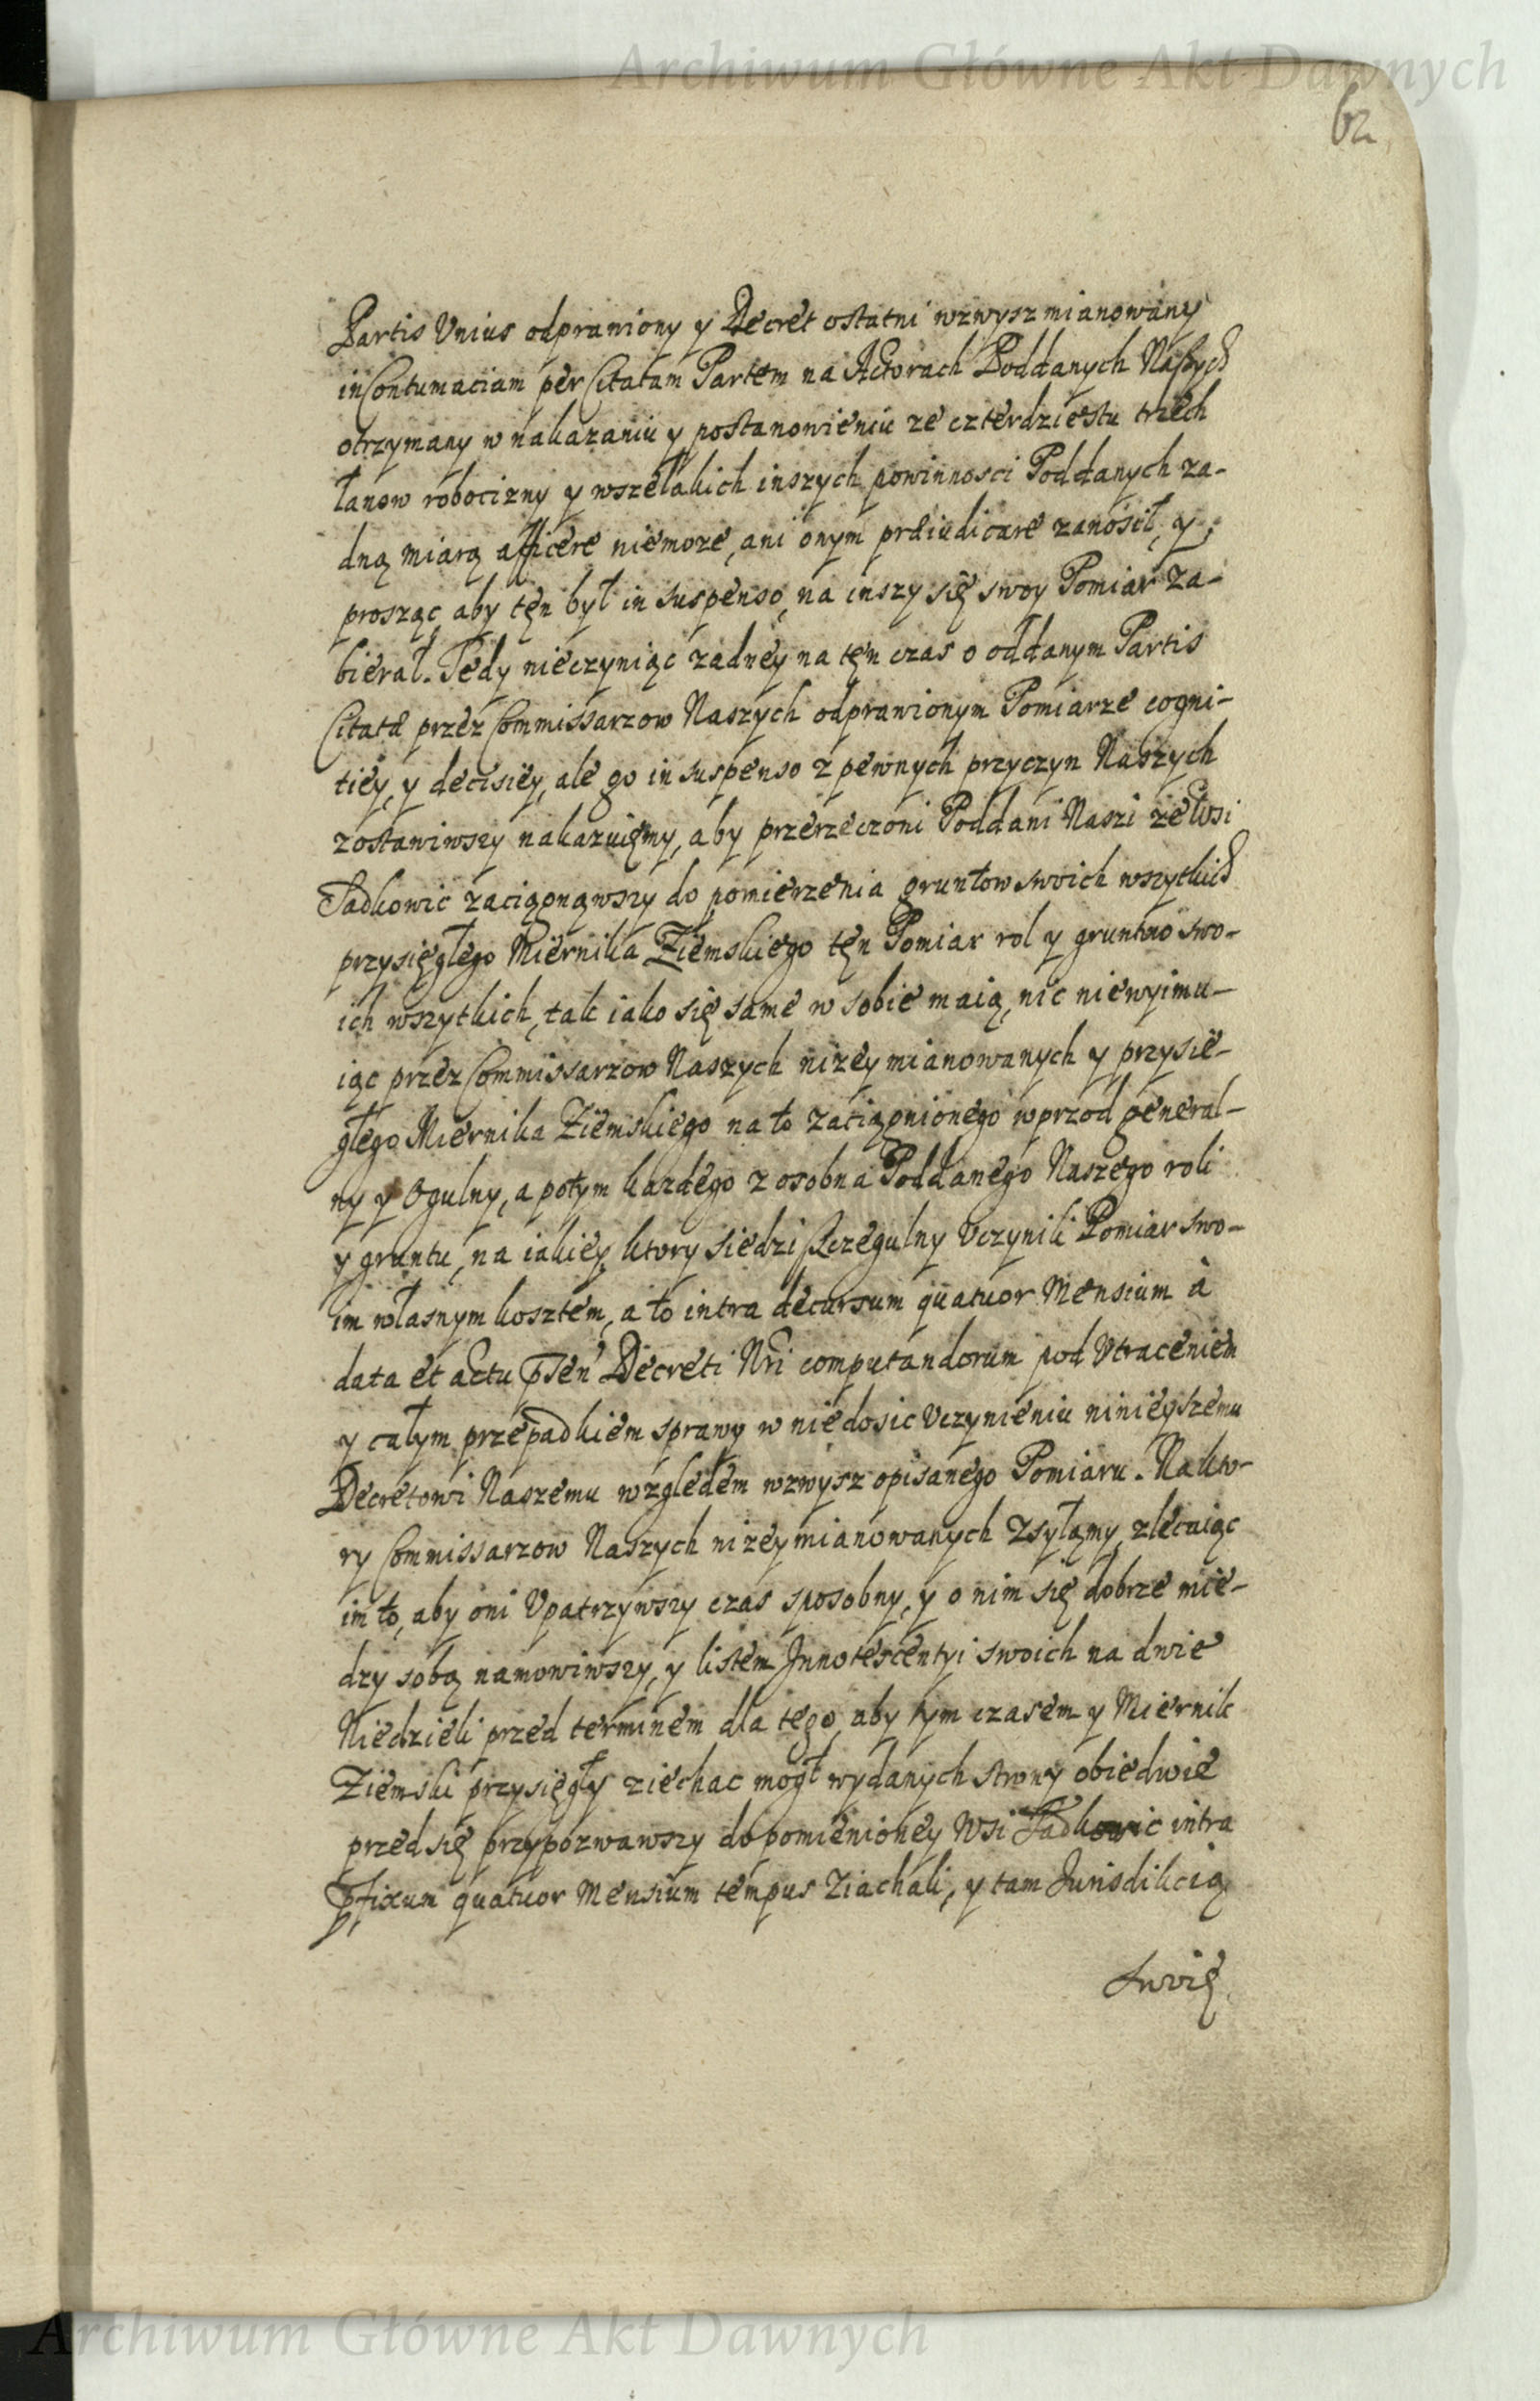 Archiwum Główne Akt Dawnych
62
Partis Vnius odprawiony y Decret ostatni wzwysz mianowany
in Contumaciam per Citatam Partem na Actorach Poddanych Naszych
otrzymany w nakazaniu y postanowieniu ze czterdziestu trzech
łanow robocizny y wszelakich inszych powinnosci Poddanych za-
dną miarą afficere niemoze, ani onym præiudicare zanosił, y
prosząc, aby tęn był in suspenso, na inszy się swoy Pomiar za-
bierał. Tedy nieczyniąc zadney na tęn czas o oddanym Partis
Citatæ przez Commissarzow Naszych odprawionym Pomiarze cogni-
tiey, y decisiey, ale go in suspenso z pewnych przyczyn Naszych
zostawiwszy nakazuięmy, aby przerzeczoni Poddani Naszi ze Wsi
Sadkowic zaciągnąwszy do pomierzenia gruntow swoich wszytkich
przysięgłego Miernika Ziemskiego tęn Pomiar rol y gruntow swo-
ich wszytkich, tak iako się same w sobie maią, nic niewyimu-
iąc przez Commissarzow Naszych nizey mianowanych y przysię-
głego Miernika Ziemskiego na to zaciągnionego wprzod general-
ny y Ogulny, a potym kazdego z osobna Poddanego Naszego roli
y gruntu, na iakiey ktory siedzi szczegulny Vczynili Pomiar swo-
im własnym kosztem, a to intra decursum quatuor Mensium à
data et actu pñsen Decreti Nri computandorum pod Vtraceniem
y całym przepadkiem sprawy w niedosic Vczynieniu ninieyszemu
Decretowi Naszemu względem wzwysz opisanego Pomiaru. Na kto-
ry Commissarzow Naszych nizey mianowanych Zsyłamy, zlecaiąc
im to, aby oni Vpatrzywszy czas sposobny, y o nim się dobrze mie-
dzy sobą namowiwszy, y listem Innotescentyi swoich na dwie
Niedzieli przed terminem dla tego, aby tym czasem y Miernik
Ziemski przysięgły ziechac mogł wydanych strony obiedwie
przed się przypozwawszy do pomienioney Wsi Sadkowic intra
pfixum quatuor Mensium tempus Ziachali, y tam Iurisdikcią
swoię
Archiwum Główne Akt Dawnych